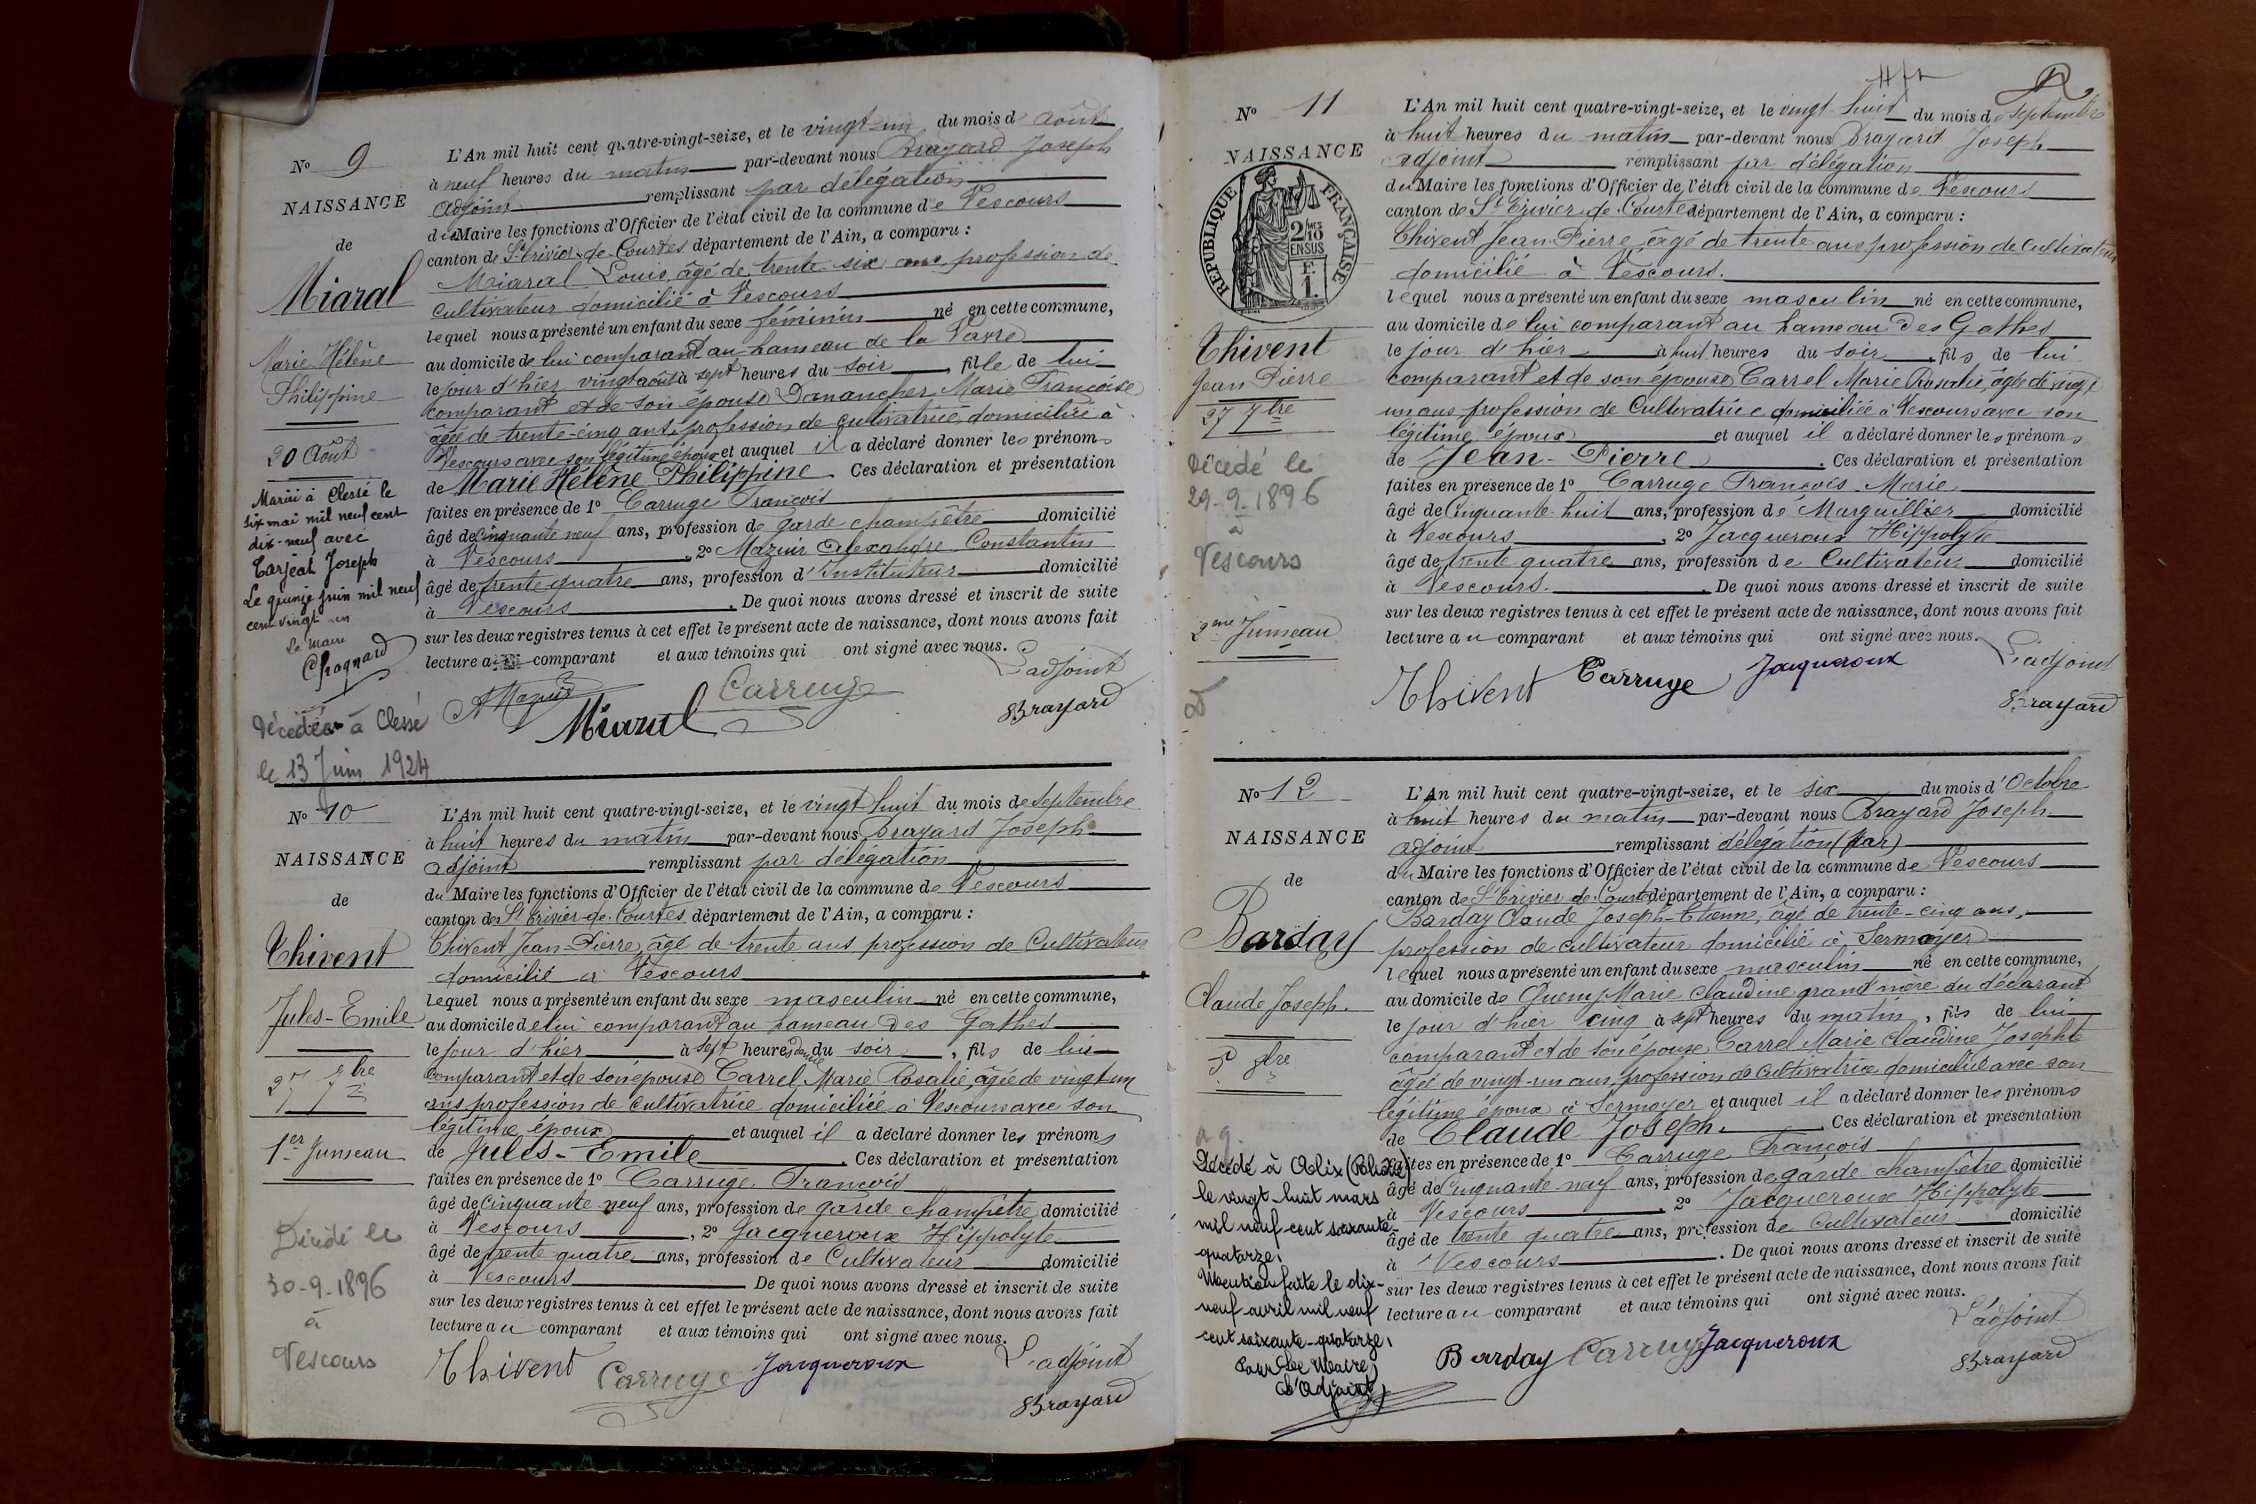 No 9
NAISSANCE
de
Miaral
Marie Hélène
Philippine
20 Août
Mariée à Clessé le
six mai mil neuf cent
dix-neuf avec
Tarjeat Joseph
Le quinze juin mil neuf
cent vingt un
Le maire
Chognard
Décédée à Clessé
le 13 Juin 1924
L'An mil huit cent quatre-vingt-seize, et le vingt-un du mois d'août
à neuf heures du matin par-devant nous Brayard Joseph
adjoint remplissant par délégation
du Maire les fonctions d'Officier de l'état civil de la commune de Vescours
canton de St Trivier-de-Courtes département de l'Ain, a comparu :
Miaral Louis, âgé de trente six ans profession de
cultivateur domicilié à Vescours
lequel nous a présenté un enfant du sexe féminin né en cette commune,
au domicile de lui comparant au hameau de la
le jour d'hier vingt août à sept heures du soir, fille de lui
comparant et de son épouse Danancher Marie Françoise
âgée de trente-cinq ans, profession de cultivatrice, domiciliée à
Vescours avec son légitime époux et auquel il a déclaré donner les prénoms
de Marie Hélène Philippine Ces déclaration et présentation
faites en présence de 1o Carruge François
âgé de cinquante neuf ans, profession de garde champêtre domicilié
à Vescours, 2o Mazuir Alexandre Constantin
âgé de trente quatre ans, profession d'Instituteur domicilié
à Vescours. De quoi nous avons dressé et inscrit de suite
sur les deux registres tenus à cet effet le présent acte de naissance, dont nous avons fait
lecture au comparant et aux témoins qui ont signé avec nous.
L'adjoint
A Mazuir Miaral Carruge Brayard
No 10
NAISSANCE
de
Thivent
Jules-Emile
27 7bre
1er Jumeau
Décédé le
30-9-1896
à
Vescours
L'An mil huit cent quatre-vingt-seize, et le vingt huit du mois de Septembre
à huit heures du matin par-devant nous Brayard Joseph
adjoint remplissant par délégation
du Maire les fonctions d'Officier de l'état civil de la commune de Vescours
canton de St Trivier-de-Courtes, département de l'Ain, a comparu :
Thivent Jean-Pierre, âgé de trente ans profession de Cultivateur
domicilié à Vescours
lequel nous a présenté un enfant du sexe masculin né en cette commune,
au domicile de lui comparant au hameau des Gathes
le jour d'hier à sept heures du soir, fils de lui
comparant et de son épouse Carrel Marie Rosalie, âgée de vingt-un
ans profession de cultivatrice domiciliée à Vescours avec son
légitime époux et auquel il a déclaré donner les prénoms
de Jules-Emile. Ces déclaration et présentation
faites en présence de 1o Carruge François
âgé de cinquante neuf ans, profession de garde champêtre domicilié
à Vescours, 2o Jacqueroux Hippolyte
âgé de trente quatre ans, profession de Cultivateur domicilié
à Vescours De quoi nous avons dressé et inscrit de suite
sur les deux registres tenus à cet effet le présent acte de naissance, dont nous avons fait
lecture au comparant et aux témoins qui ont signé avec nous.
L'adjoint
Thivent Carruge Jacqueroux Brayard
No 11
NAISSANCE
REPUBLIQUE FRANÇAISE
2/10MES
EN SUS
F.
1.
Thivent
Jean Pierre
27 7bre
Décédé le
29-9-1896
à
Vescours
2ème Jumeau
L'An mil huit cent quatre-vingt-seize, et le vingt huit du mois de Septembre
à huit heures du matin par-devant nous Brayard Joseph
adjoint remplissant par délégation
du Maire les fonctions d'Officier de l'état civil de la commune de Vescours
canton de St Trivier-de-Courtes département de l'Ain, a comparu :
Thivent Jean-Pierre, âgé de trente ans profession de cultivateur
domicilié à Vescours.
lequel nous a présenté un enfant du sexe masculin né en cette commune,
au domicile de lui comparant au hameau des Gathes
le jour d'hier à huit heures du soir, fils de lui
comparant et de son épouse Carrel Marie Rosalie, âgée de vingt
un ans profession de Cultivatrice domiciliée à Vescours avec son
légitime époux et auquel il a déclaré donner les prénoms
de Jean-Pierre. Ces déclaration et présentation
faites en présence de 1o Carruge François-Marie
âgé de Cinquante-huit ans, profession de Marguillier domicilié
à Vescours, 2o Jacqueroux Hippolyte
âgé de trente quatre ans, profession de Cultivateur domicilié
à Vescours. De quoi nous avons dressé et inscrit de suite
sur les deux registres tenus à cet effet le présent acte de naissance, dont nous avons fait
lecture au comparant et aux témoins qui ont signé avec nous.
L'adjoint
Thivent Carruge Jacqueroux Brayard
No 12
NAISSANCE
de
Barday
Claude Joseph.
5 8bre
Décédé à Alix (Rhône)
le vingt-huit mars
mil neuf cent soixante-
quatorze.
Mention faite le dix-
neuf avril mil neuf
cent soixante-quatorze.
Pour Le Maire,
L'Adjoint,
L'An mil huit cent quatre-vingt-seize, et le six du mois d'Octobre
à huit heures du matin par-devant nous Brayard Joseph
adjoint remplissant délégation (par)
du Maire les fonctions d'Officier de l'état civil de la commune de Vescours
canton de St Trivier-de-Courtes département de l'Ain, a comparu :
Barday Claude Joseph-Etienne, âgé de trente-cinq ans,
profession de cultivateur domicilié à Sermoyer
lequel nous a présenté un enfant du sexe masculin né en cette commune,
au domicile de Marie Claudine grand mère du déclarant
le jour d'hier cinq à sept heures du matin, fils de lui
comparant et de son épouse Carrel Marie Claudine Josephte
âgée de vingt-un ans, profession de cultivatrice domiciliée avec son
légitime époux à Sermoyer et auquel il a déclaré donner les prénoms
de Claude Joseph. Ces déclaration et présentation
faites en présence de 1o Carruge François
âgé de cinquante neuf ans, profession de garde champêtre domicilié
à Vescours, 2o Jacqueroux Hippolyte
âgé de trente quatre ans, profession de Cultivateur domicilié
à Vescours. De quoi nous avons dressé et inscrit de suite
sur les deux registres tenus à cet effet le présent acte de naissance, dont nous avons fait
lecture au comparant et aux témoins qui ont signé avec nous.
L'adjoint
Barday Carruge Jacqueroux Brayard